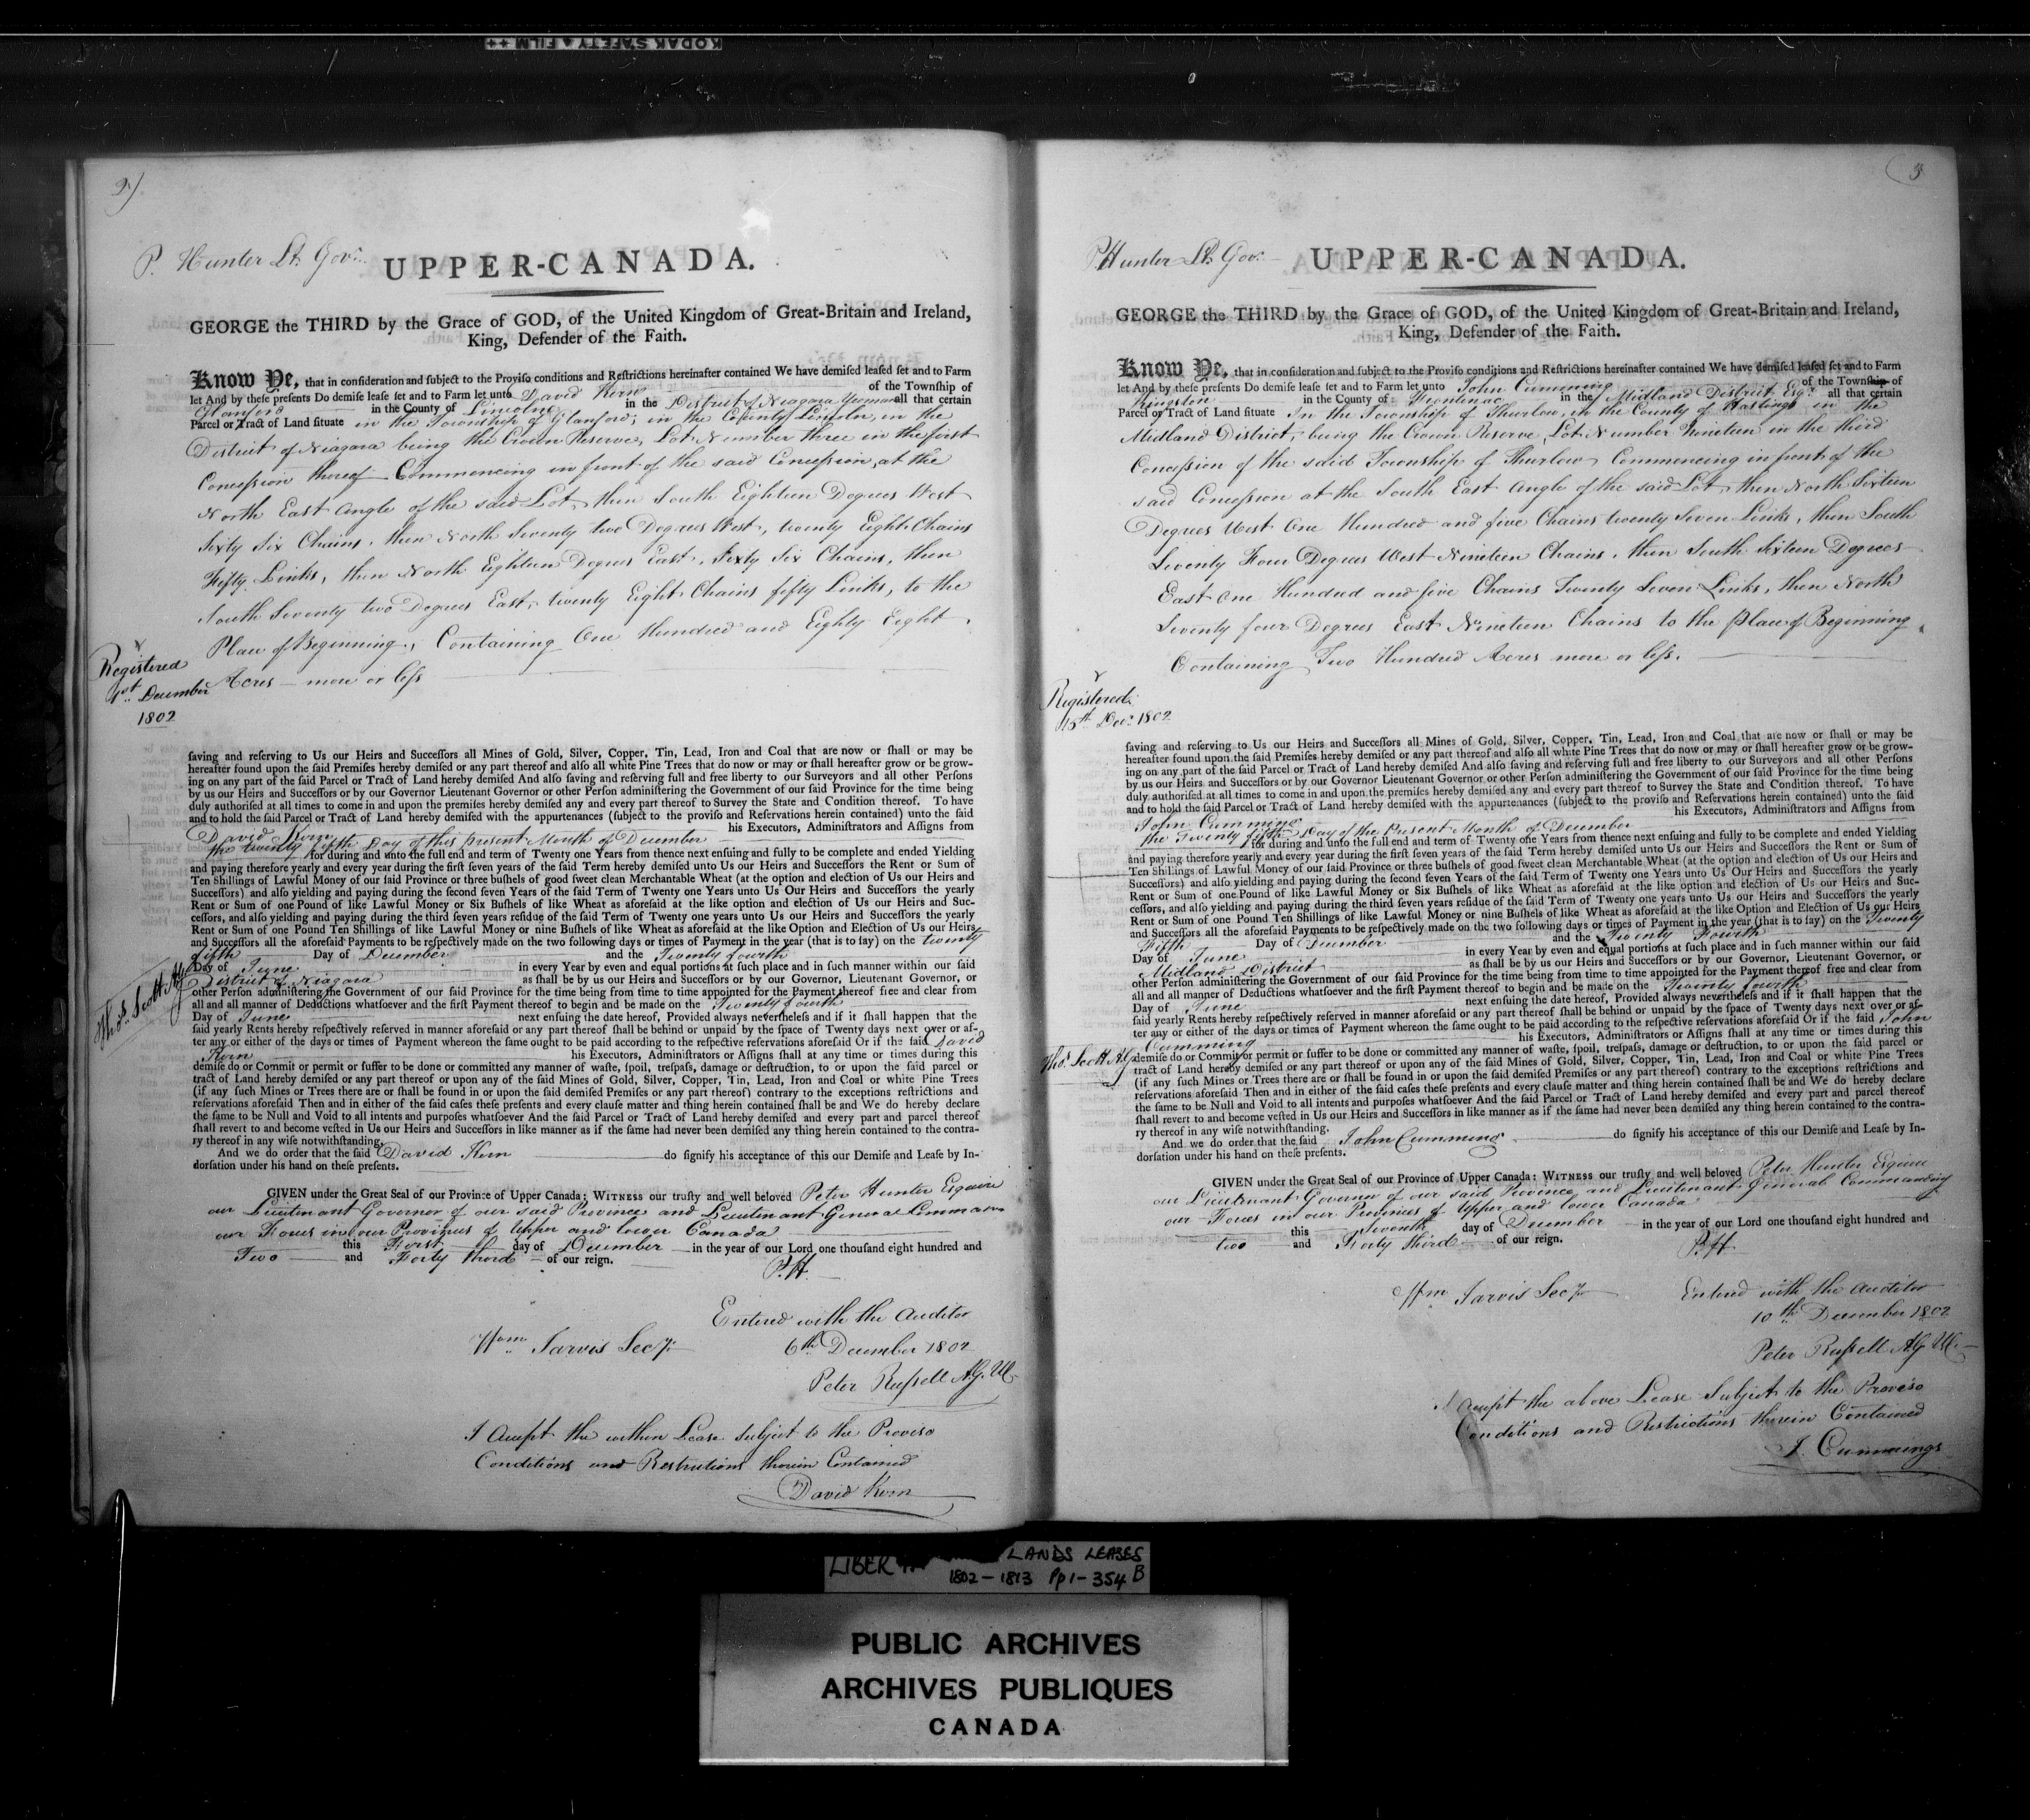 KODAK SAFETY FILM
2)
P. Hunter Lt. Govr.
UPPER-CANADA.
GEORGE the THIRD by the Grace of GOD, of the United Kingdom of Great-Britain and Ireland,
King, Defender of the Faith.
Know Ye, that in consideration and subject to the Proviso conditions and Restrictions hereinafter contained We have demised leased set and to Farm
let And by these presents Do demise lease set and to Farm let unto David Kern of the Township of
Glanford in the County of Lincoln in the District of Niagara Yeoman all that certain
Parcel or Tract of Land situate in the Township of Glanford; in the County of Lincoln, in the
District of Niagara being the Crown Reserve, Lot Number three in the first
Concession thereof Commencing in front of the said Concession, at the
North East Angle of the said Lot, then South Eighteen Degrees West
Sixty Six Chains, then North Seventy two Degrees West, twenty Eight Chains
Fifty Links, then North Eighteen Degrees East, Sixty Six Chains, then
South Seventy two Degrees East, twenty Eight Chains fifty Links, to the
Place of Beginning, Containing One Hundred and Eighty Eight
Acres more or less
Registered
1st December
1802
saving and reserving to Us our Heirs and Successors all Mines of Gold, Silver, Copper, Tin, Lead, Iron and Coal that are now or shall or may be
hereafter found upon the said Premises hereby demised or any part thereof and also all white Pine Trees that do now or may or shall hereafter grow or be grow-
ing on any part of the said Parcel or Tract of Land hereby demised And also saving and reserving full and free liberty to our Surveyors and all other Persons
by us our Heirs and Successors or by our Governor Lieutenant Governor or other Person administering the Government of our said Province for the time being
duly authorised at all times to come in and upon the premises hereby demised any and every part thereof to Survey the State and Condition thereof. To have
and to hold the said Parcel or Tract of Land hereby demised with the appurtenances (subject to the proviso and Reservations herein contained) unto the said
David Kern his Executors, Administrators and Assigns from
the twenty fifth Day of this present Month of December
for during and unto the full end and term of Twenty one Years from thence next ensuing and fully to be complete and ended Yielding
and paying therefore yearly and every year during the first seven years of the said Term hereby demised unto Us our Heirs and Successors the Rent or Sum of
Ten Shillings of Lawful Money of our said Province or three bushels of good sweet clean Merchantable Wheat (at the option and election of Us our Heirs and
Successors) and also yielding and paying during the second seven Years of the said Term of Twenty one Years unto Us Our Heirs and Successors the yearly
Rent or Sum of one Pound of like Lawful Money or Six Bushels of like Wheat as aforesaid at the like option and election of Us our Heirs and Suc-
cessors, and also yielding and paying during the third seven years residue of the said Term of Twenty one years unto Us our Heirs and Successors the yearly
Rent or Sum of one Pound Ten Shillings of like Lawful Money or nine Bushels of like Wheat as aforesaid at the like Option and Election of Us our Heirs
and Successors all the aforesaid Payments to be respectively made on the two following days or times of Payment in the year (that is to say) on the twenty
fifth Day of December and the Twenty fourth
Day of June in every Year by even and equal portions at such place and in such manner within our said
District of Niagara as shall be by us our Heirs and Successors or by our Governor, Lieutenant Governor, or
other Person administering the Government of our said Province for the time being from time to time appointed for the Payment thereof free and clear from
all and all manner of Deductions whatsoever and the first Payment thereof to begin and be made on the Twenty fourth
Day of June next ensuing the date hereof, Provided always nevertheless and if it shall happen that the
said yearly Rents hereby respectively reserved in manner aforesaid or any part thereof shall be behind or unpaid by the space of Twenty days next over or af-
ter any or either of the days or times of Payment whereon the same ought to be paid according to the respective reservations aforesaid Or if the said David
Kern his Executors, Administrators or Assigns shall at any time or times during this
demise do or Commit or permit or suffer to be done or committed any manner of waste, spoil, trespass, damage or destruction, to or upon the said parcel or
tract of Land hereby demised or any part thereof or upon any of the said Mines of Gold, Silver, Copper, Tin, Lead, Iron and Coal or white Pine Trees
(if any such Mines or Trees there are or shall be found in or upon the said demised Premises or any part thereof) contrary to the exceptions restrictions and
reservations aforesaid Then and in either of the said cases these presents and every clause matter and thing herein contained shall be and We do hereby declare
the same to be Null and Void to all intents and purposes whatsoever And the said Parcel or Tract of Land hereby demised and every part and parcel thereof
shall revert to and become vested in Us our Heirs and Successors in like manner as if the same had never been demised any thing herein contained to the contra-
ry thereof in any wise notwithstanding.
And we do order that the said David Kern do signify his acceptance of this our Demise and Lease by In-
dorsation under his hand on these presents.
Thos. Scott A.G.
GIVEN under the Great Seal of our Province of Upper Canada: WITNESS our trusty and well beloved Peter Hunter Esquire
our Lieutenant Governor of our said Province and Lieutenant General Comman
our Forces in our Provinces of Upper and lower Canada
this First day of December in the year of our Lord one thousand eight hundred and
Two and Forty third of our reign.
P.H.
Entered with the Auditor
Wm. Jarvis Secy. 6th December 1802
Peter Russell A.G. UC.
I Accept the within Lease Subject to the Proviso
Conditions and Restrictions therein Contained
David Kern
3
P Hunter Lt. Gov.
UPPER-CANADA.
GEORGE the THIRD by the Grace of GOD, of the United Kingdom of Great-Britain and Ireland,
King, Defender of the Faith.
Know Ye, that in consideration and subject to the Proviso conditions and Restrictions hereinafter contained We have demised leased set and to Farm
let And by these presents Do demise lease set and to Farm let unto John Cumming of the Township of
Kingston in the County of Frontenac in the Midland District Esqr. all that certain
Parcel or Tract of Land situate In the Township of Thurlow, in the County of Hastings in the
Midland District, being the Crown Reserve, Lot Number Nineteen in the third
Concession of the said Township of Thurlow Commencing in front of the
said Concession at the South East Angle of the said Lot, then North Sixteen
Degrees West One Hundred and five Chains twenty Seven Links, then South
Seventy Four Degrees West Nineteen Chains, then South Sixteen Degrees
East One Hundred and five Chains Twenty Seven Links, then North
Seventy four Degrees East Nineteen Chains to the Place of Beginning
Containing Two Hundred Acres more or less.
Registered
15th Decr. 1802
saving and reserving to Us our Heirs and Successors all Mines of Gold, Silver, Copper, Tin, Lead, Iron and Coal that are now or shall or may be
hereafter found upon the said Premises hereby demised or any part thereof and also all white Pine Trees that do now or may or shall hereafter grow or be grow-
ing on any part of the said Parcel or Tract of Land hereby demised And also saving and reserving full and free liberty to our Surveyors and all other Persons
by us our Heirs and Successors or by our Governor Lieutenant Governor or other Person administering the Government of our said Province for the time being
duly authorised at all times to come in and upon the premises hereby demised any and every part thereof to Survey the State and Condition thereof. To have
and to hold the said Parcel or Tract of Land hereby demised with the appurtenances (subject to the proviso and Reservations herein contained) unto the said
John Cumming his Executors, Administrators and Assigns from
the Twenty fifth Day of the Present Month of December
for during and unto the full end and term of Twenty one Years from thence next ensuing and fully to be complete and ended Yielding
and paying therefore yearly and every year during the first seven years of the said Term hereby demised unto Us our Heirs and Successors the Rent or Sum of
Ten Shillings of Lawful Money of our said Province or three bushels of good sweet clean Merchantable Wheat (at the option and election of Us our Heirs and
Successors) and also yielding and paying during the second seven Years of the said Term of Twenty one Years unto Us Our Heirs and Successors the yearly
Rent or Sum of one Pound of like Lawful Money or Six Bushels of like Wheat as aforesaid at the like option and election of Us our Heirs and Suc-
cessors, and also yielding and paying during the third seven years residue of the said Term of Twenty one years unto Us our Heirs and Successors the yearly
Rent or Sum of one Pound Ten Shillings of like Lawful Money or nine Bushels of like Wheat as aforesaid at the like Option and Election of Us our Heirs
and Successors all the aforesaid Payments to be respectively made on the two following days or times of Payment in the year (that is to say) on the Twenty
Fifth Day of December and the Twenty Fourth
Day of June in every Year by even and equal portions at such place and in such manner within our said
Midland District as shall be by us our Heirs and Successors or by our Governor, Lieutenant Governor, or
other Person administering the Government of our said Province for the time being from time to time appointed for the Payment thereof free and clear from
all and all manner of Deductions whatsoever and the first Payment thereof to begin and be made on the Twenty fourth
Day of June next ensuing the date hereof, Provided always nevertheless and if it shall happen that the
said yearly Rents hereby respectively reserved in manner aforesaid or any part thereof shall be behind or unpaid by the space of Twenty days next over or af-
ter any or either of the days or times of Payment whereon the same ought to be paid according to the respective reservations aforesaid Or if the said John
Cumming his Executors, Administrators or Assigns shall at any time or times during this
Thos. Scott A.G. demise do or Commit or permit or suffer to be done or committed any manner of waste, spoil, trespass, damage or destruction, to or upon the said parcel or
tract of Land hereby demised or any part thereof or upon any of the said Mines of Gold, Silver, Copper, Tin, Lead, Iron and Coal or white Pine Trees
(if any such Mines or Trees there are or shall be found in or upon the said demised Premises or any part thereof) contrary to the exceptions restrictions and
reservations aforesaid Then and in either of the said cases these presents and every clause matter and thing herein contained shall be and We do hereby declare
the same to be Null and Void to all intents and purposes whatsoever And the said Parcel or Tract of Land hereby demised and every part and parcel thereof
shall revert to and become vested in Us our Heirs and Successors in like manner as if the same had never been demised any thing herein contained to the contra-
ry thereof in any wise notwithstanding.
And we do order that the said John Cumming do signify his acceptance of this our Demise and Lease by In-
dorsation under his hand on these presents.
GIVEN under the Great Seal of our Province of Upper Canada: WITNESS our trusty and well beloved Peter Hunter Esquire
our Lieutenant Governor of our said Province and Lieutenant General Commanding
our Forces in our Provinces of Upper and lower Canada
this Seventh day of December in the year of our Lord one thousand eight hundred and
two and Forty third of our reign.
P.H.
Wm Jarvis Secy. Entered with the Auditor
10th December 1802
Peter Russell A.G. UC.
I accept the above Lease Subject to the Proviso
Conditions and Restrictions therein Contained
J. Cummings
LIBER LANDS LEASES
1802-1813 Pp 1-354 B
PUBLIC ARCHIVES
ARCHIVES PUBLIQUES
CANADA